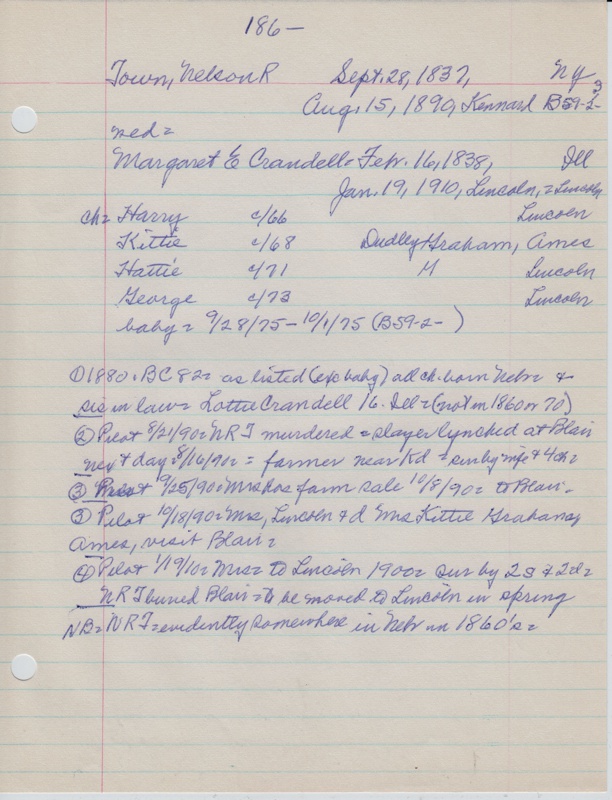 186-
Town, Nelson R Sept. 28, 1837, NY
Aug. 15, 1890, Kennard B59-2-3
med=
Margaret E Crandell- Feb. 16, 1838, Ill
Jan. 19, 1910, Lincoln, = Lincoln
ch= Harry c/66 Lincoln
Kittie c/68 Dudley Graham, Ames
Hattie c/71 M Lincoln
George c/73 Lincoln
baby = 9/28/75-10/1/75 (B59-2- )
① 1880. BC 82= as listed (exc baby) all ch. born Nebr= &
sis in law= Lottie Crandell 16. Ill= (not in 1860 or 70)
② Pilot 8/21/90= NRT murdered = slayer lynched at Blair
next day= 8/16/90= = farmer near Kd = sur by wife & 4 ch=
③ Pilot 9/25/90= Mrs has farm sale 10/8/90= to Blair-
③ Pilot 10/18/90= Mrs, Lincoln & d Mrs Kittie Graham,
Ames, visit Blair=
④ Pilot 1/19/10= Mrs= to Lincoln 1900= sur by 2 s & 2 d=
NRT buried Blair= to be moved to Lincoln in spring
NB= NRT= evidently somewhere in Nebr in 1860's=